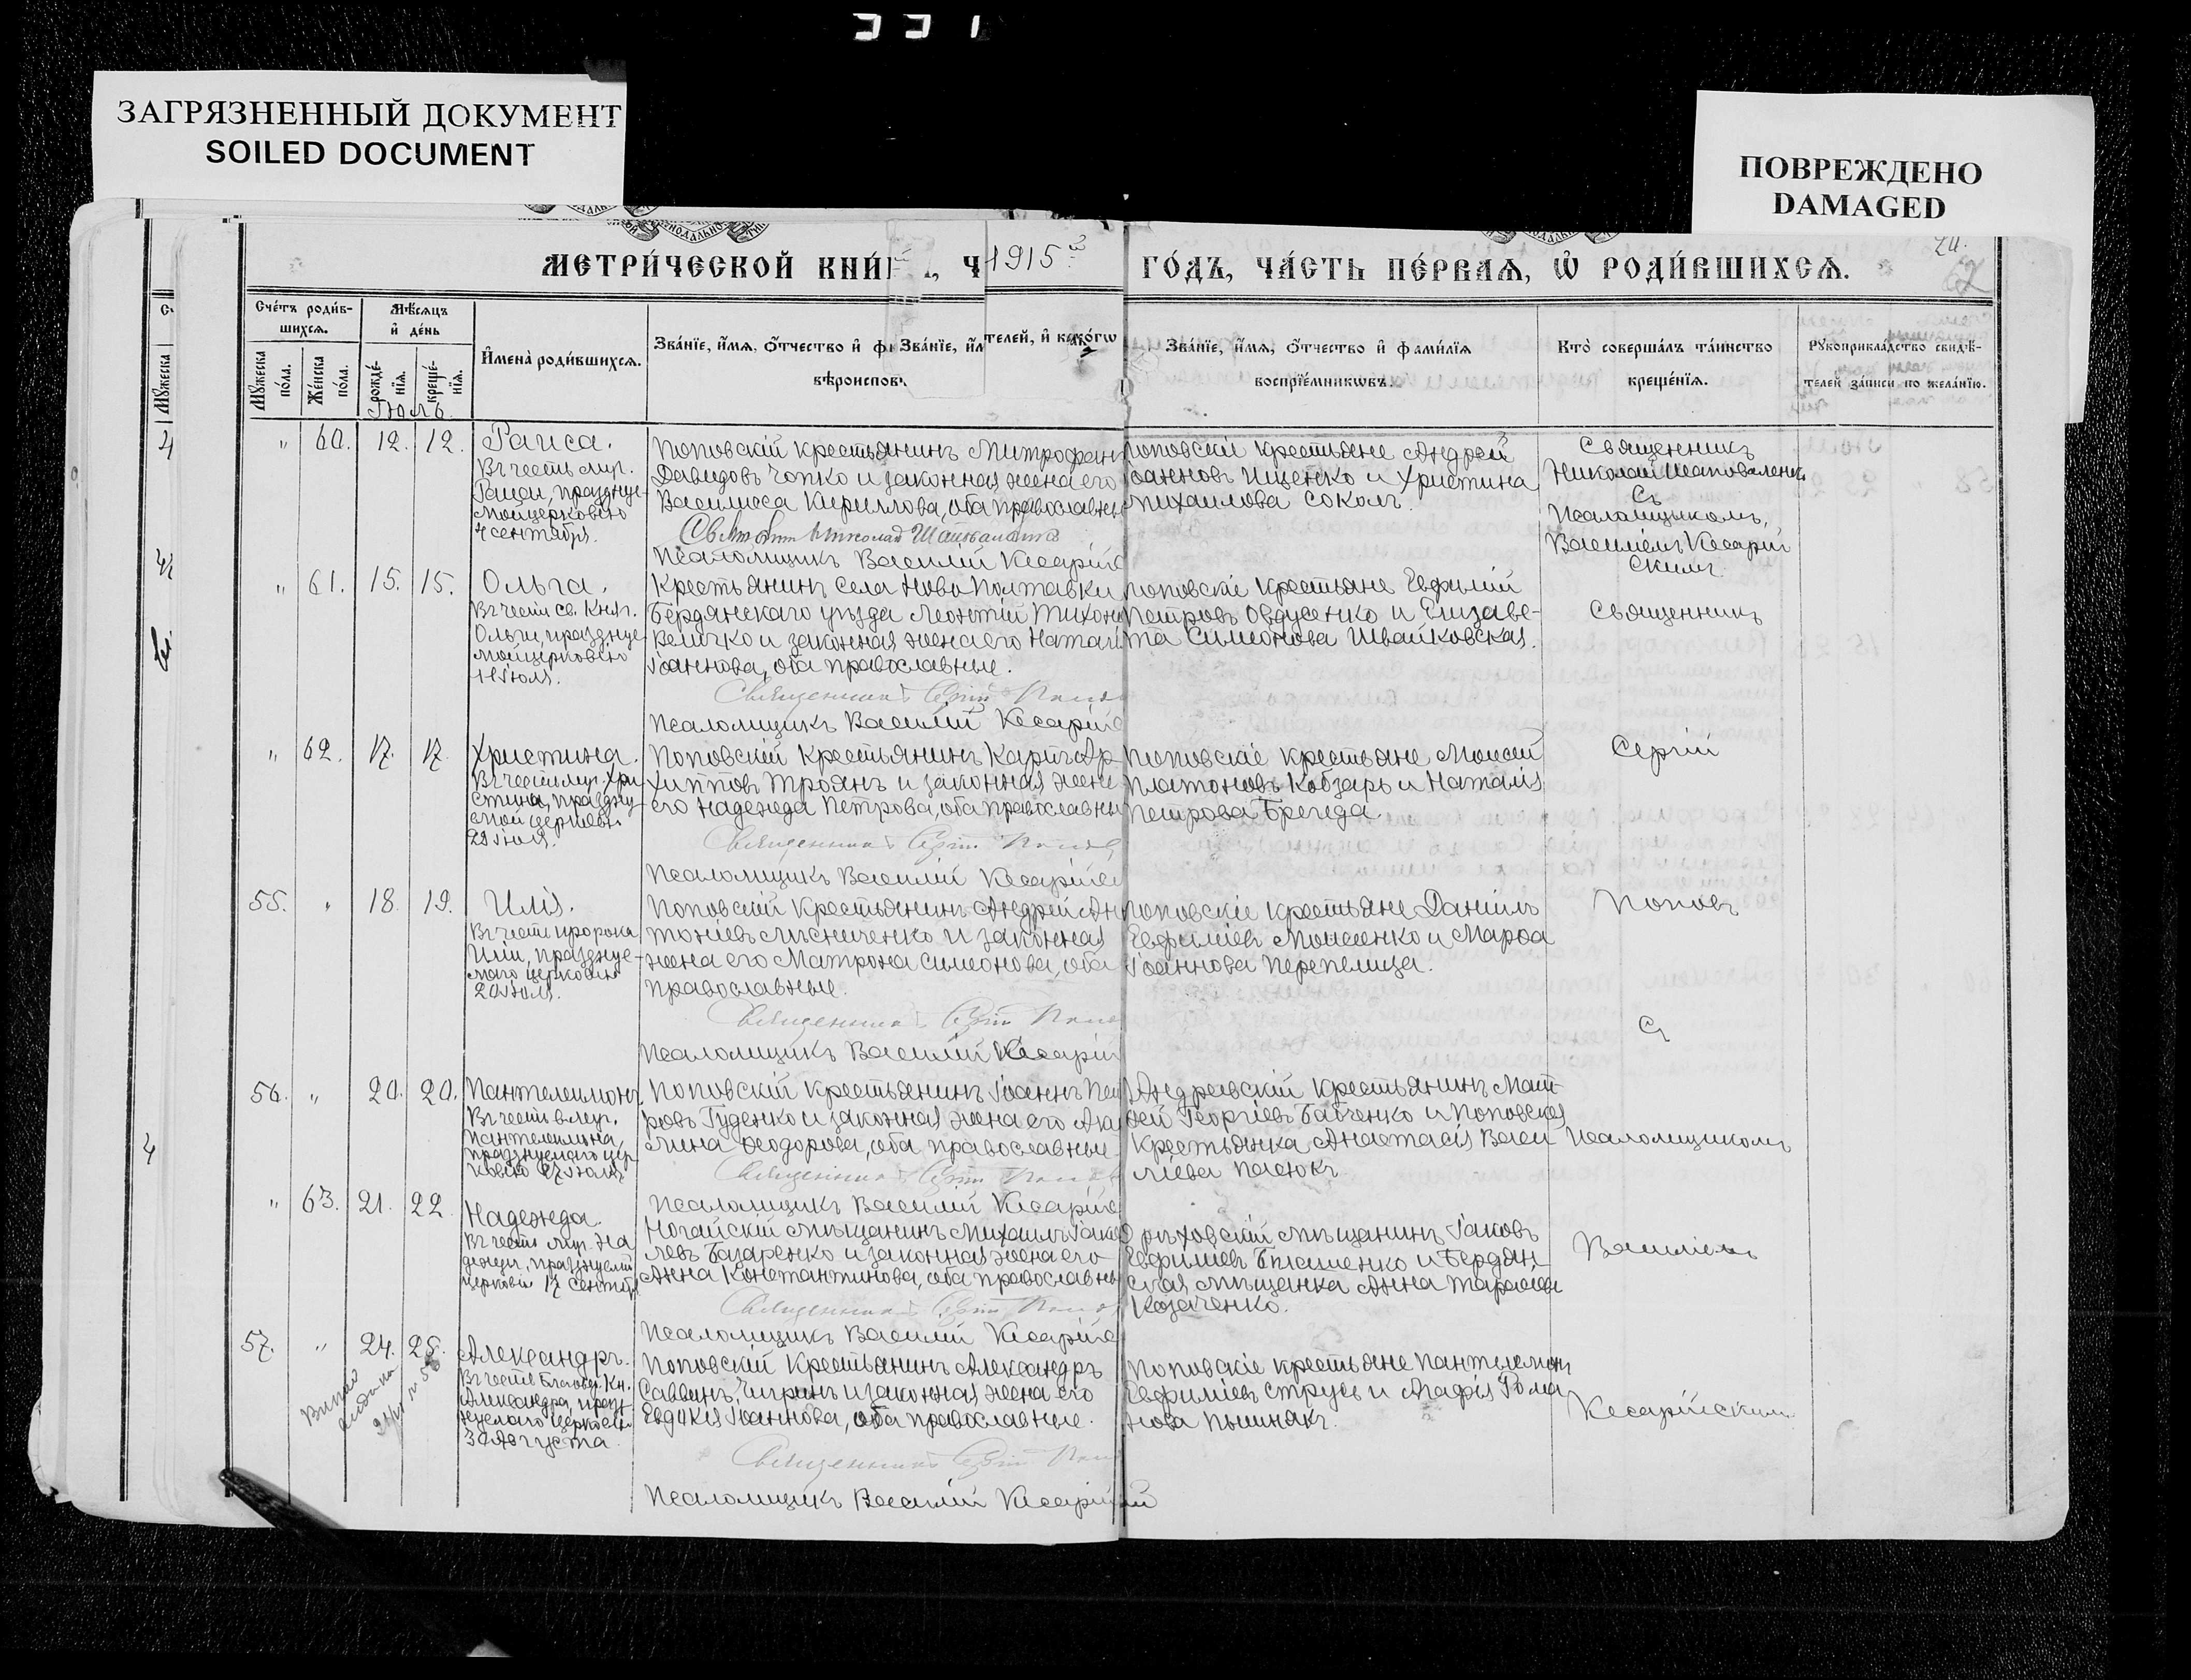 ЗАГРЯЗНЕННЫЙ ДОКУМЕНТ
SOILED DOCUMENT
ПОВРЕЖДЕНО
DAMAGED
МЕТРИ́ЧЕСКОЙ КНИ́
1915
ГО́ДЪ, ЧА́СТЬ ПЕ́РВАѦ, Ѡ҆ РОДИ́ВШИХСѦ.
Сче́тъ роди́в-
шихсѧ.
Мѣ́сѧцъ
и҆ де́нь
Мꙋжеска по́ла.
Же́нска по́ла.
рожде́-
нїѧ.
креще́-
нїѧ.
И҆мена̀ роди́вшихсѧ.
Зва́нїе, и҆́мѧ, ѻ҆́тчество и҆
телей, и҆ како́гѡ
вѣроиспов
Зва́нїе, и҆́мѧ, ѻ҆́тчество и҆ фами́лїѧ
воспрїе́мникѡвъ.
Кто̀ соверша́лъ та́инство
креще́нїѧ.
Рꙋкоприкла́дство свидѣ́-
телей за́писи по жела́нїю.
Іюль.
" 60. 12. 12. Раиса.
Въ честь муч.
Раисы, праздну-
мой церковію
4 сентября.
Поповскій крестьянинъ Митрофанъ
Давидовъ Чопко и законная жена его
Василиса Кириллова, оба православные
Николай
Псаломщикъ Василій Кесарійс
Поповскіе крестьяне Андрей
Іоанновъ Ищенко и Христина
Михаилова Соколъ.
Священникъ
Николай Шаповаленко
Съ
Псаломщикомъ,
Василіемъ Кесарій
скимъ.
" 61. 15. 15. Ольга.
Въ честь св. Княг.
Ольги, праздну-
мой церковію
11 Іюля.
Крестьянинъ села Ново Полтавки
Бердянскаго уѣзда Леонтій Тихоно
и законная жена его Натал
Іоаннова, оба православные.
Священникъ Сергій Попов
Псаломщикъ Василій Кесарійс
Поповскіе крестьяне Евфимій
Петровъ Овдусенко и Елизаве-
та Симеонова Швайковская.
Священникъ
" 62. 17. 17. Христина.
Въ честь муч. Хри
стины, праздну
мой церковію
Іюля.
Поповскій Крестьянинъ Карпъ Ар-
хипповъ Троянъ и законная жена
его Надежда Петрова, оба православны
Священникъ Сергій Попов
Псаломщикъ Василій Кесарійс
Поповскіе крестьяне Моисей
Платоновъ Кобзарь и Наталія
Петрова Брегеда.
Сергій
55. " 18. 19. Илія.
Въ честь пророка
Иліи, праздную-
маго церковію
20 Іюля.
Поповскій Крестьянинъ Андрей Ан
тоніевъ Мѣсниченко и законная
жена его Матрона Симеонова, оба
православные.
Священникъ Сергій Попов
Псаломщикъ Василій Кесарій
Поповскіе крестьяне Даніилъ
Евфиміевъ Мошенко и Марѳа
Іоаннова Перепелица.
Поповъ
Съ
56. " 20. 20. Пантелеимонъ.
Въ честь вмуч.
Пантелеимона,
празднуемаго цер
ковію 27 Іюля
Поповскій Крестьянинъ Іоаннъ Пет
ровъ Гуденко и законная жена его Аку
лина Ѳеодорова, оба православные
Священникъ Сергій Попов
Псаломщикъ Василій Кесарійс
Андреевскій Крестьянинъ Мат-
ѳей Георгіевъ Бабченко и Поповская
Крестьянка Анастасія Васи
ліева Пасюкъ
Псаломщикомъ
" 63. 21. 22. Надежда.
Въ честь муч. На
дежды, празднуемой
церковію 17 Сентяб.
Ногайскій Мѣщанинъ Михаилъ Іаков
левъ Базаренко и законная жена его
Анна Константинова, оба православны
Священникъ Сергій Попов
Псаломщикъ Василій Кесарійс
Орѣховскій Мѣщанинъ Іаковъ
Евфиміевъ и Бердян-
ская Мѣщанка Анна Тарасіева
Козаченко.
Василіемъ
57. " 24. 25. Александръ.
Въ честь Благовѣр. Кн.
Александра, празд-
нуемаго церковію
30 Августа.
Поповскій Крестьянинъ Александръ
Саввинъ Чигринъ и законная жена его
Евдокія Іоаннова, оба православные.
Священникъ Сергій Попов
Псаломщикъ Василій Кесарійскій
Поповскіе крестьяне Пантелеимонъ
Евфиміевъ Струсь и Агафія Рома
нова
Кесарійскимъ